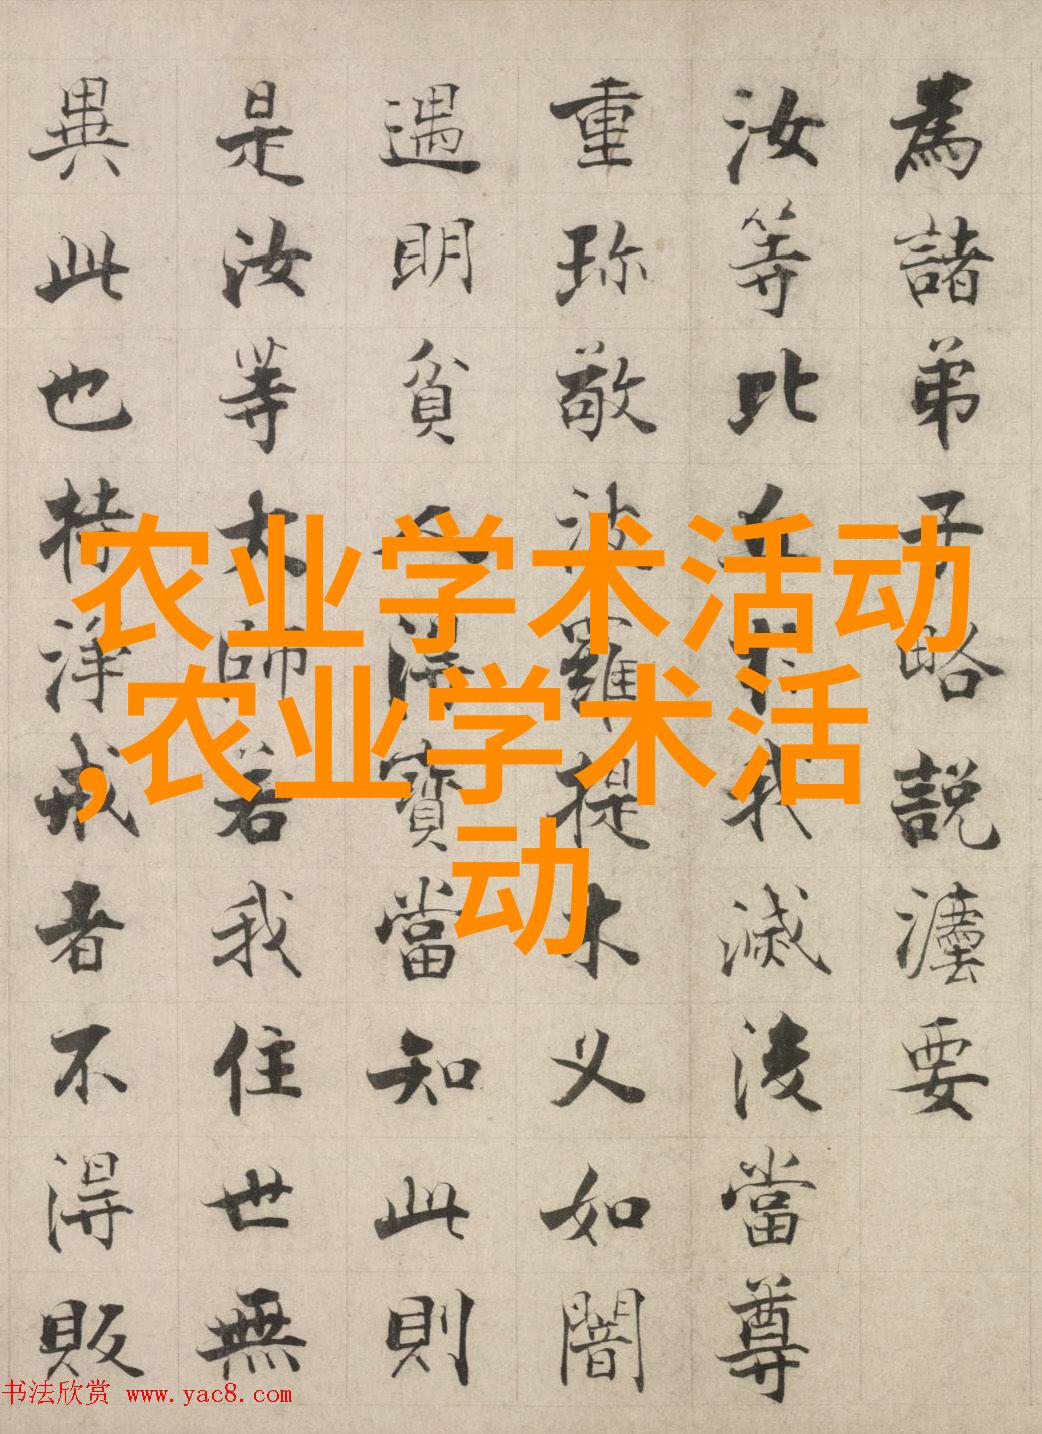 為諸弟子略說灋要
汝等比丘於我滅後當尊
重珎敬波羅提木叉如闇
遇明貧人得寶當知此則
是汝等大師若我住世無
異此也持淨戒者不得販
农业学术活动
,农业学术活
动
书法欣赏 www.yac8.com